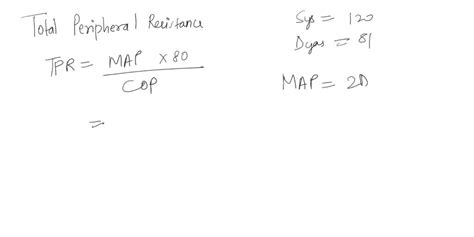 Total Peripheral Resistance
TPR = MAP x 80
COP
=
Sys = 120
Dyas = 81
MAP = 2D